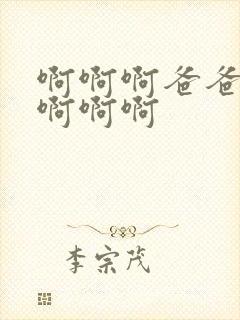 啊啊啊爸爸
啊啊啊
李宗茂